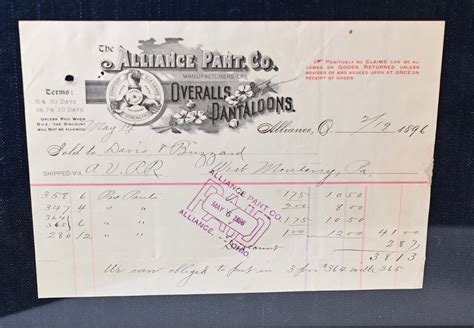 The
ALLIANCE PANT. CO.
MANUFACTURERS OF
OVERALLS
PANTALOONS.
☞ POSITIVELY NO CLAIMS CAN BE
ALLOWED OR GOODS RETURNED UNLESS
ADVISED OF AND AGREED UPON AT ONCE ON
RECEIPT OF GOODS.
Terms:
30 DAYS
10 DAYS
UNLESS PAID WHEN
DUE, THE DISCOUNT
WILL NOT BE ALLOWED.
Alliance, O. 2/19 1896
Sold to Davis & Buzzard
SHIPPED VIA A.V.RR West Monterey, Pa.
358 6 Pants 1.75 10.50
347 4 " " 2.00 8.00
364
365 6 " " 1.75 10.50
280 12 " " 1.00 12.00 41.00
Discount 2.87
38.13
We were obliged to put in 3 pr #364 with 365
ALLIANCE PANT CO.
PAID
MAY 6 1896
ALLIANCE, OHIO.